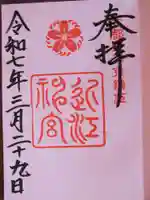 奉拝
近江
神宮
令和七年三月二十九日